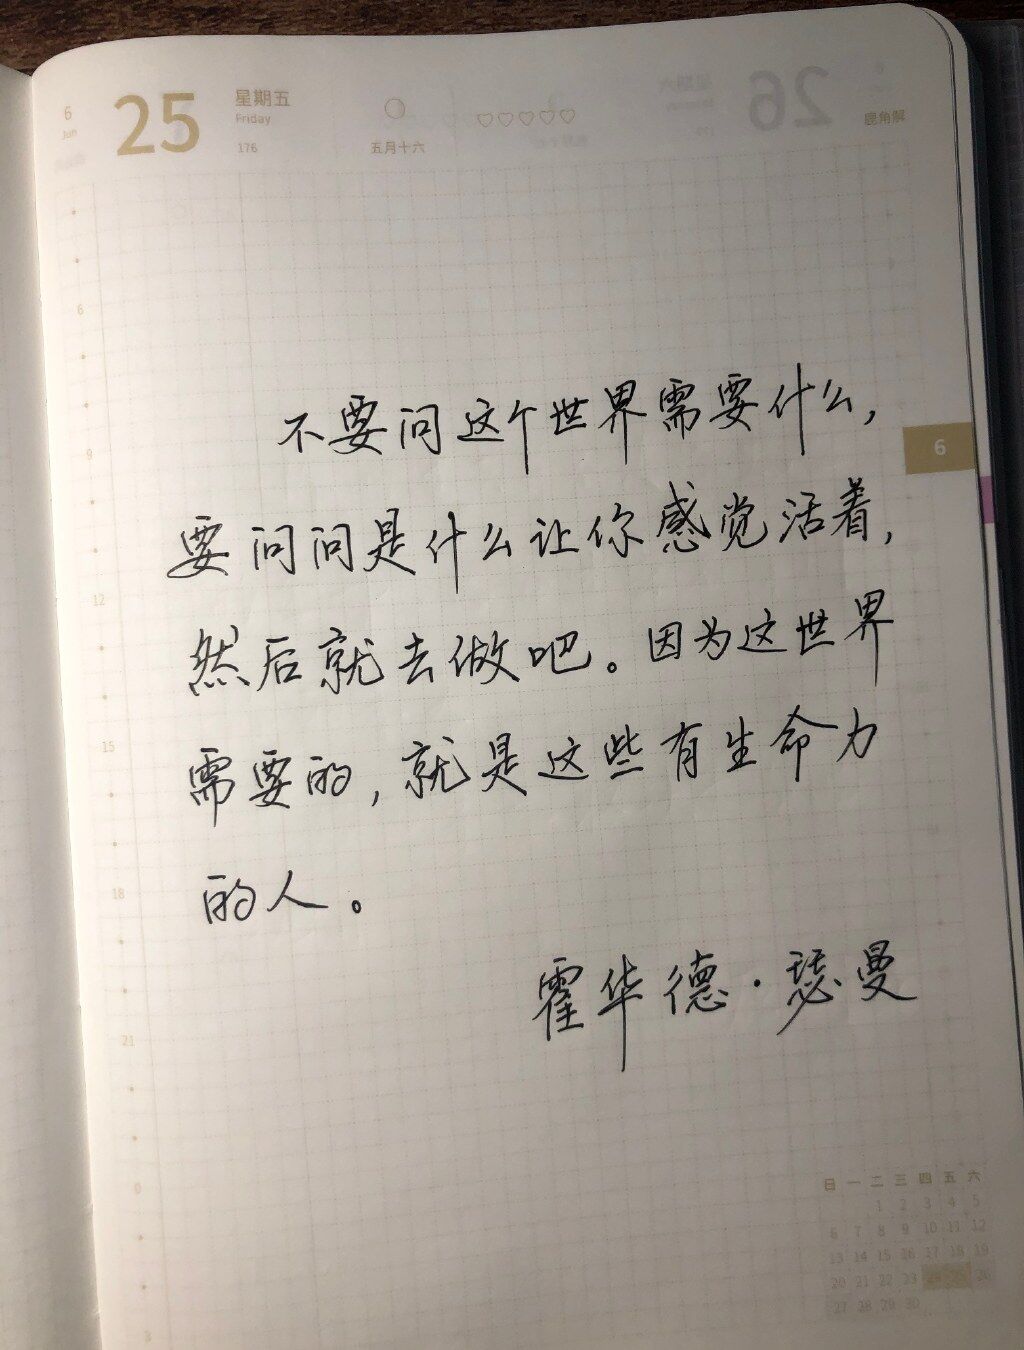 6 25 星期五
Jun Friday
176 五月十六
26
鹿角解
6
9
6
12
15
18
21
0
3
不要问这个世界需要什么，
要问问是什么让你感觉活着，
然后就去做吧。因为这世界
需要的，就是这些有生命力
的人。
霍华德·瑟曼
日 一 二 三 四 五 六
1 2 3 4 5
6 7 8 9 10 11 12
13 14 15 16 17 18 19
20 21 22 23 24 25 26
27 28 29 30